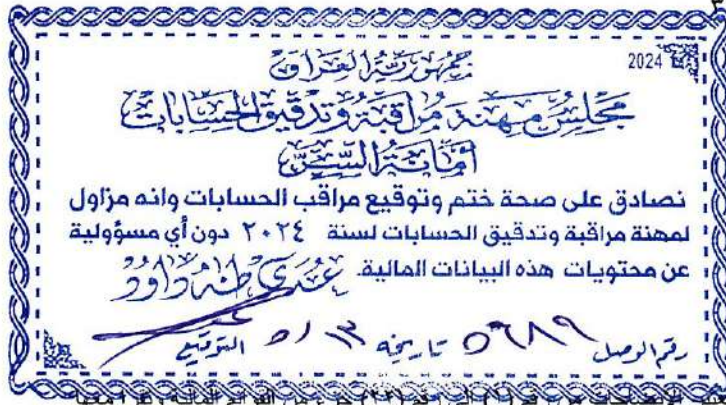 2024
جمهورية العراق
مجلس مهنة مراقبة وتدقيق الحسابات
أمانة السر
نصادق على صحة ختم وتوقيع مراقب الحسابات وانه مزاول
لمهنة مراقبة وتدقيق الحسابات لسنة ٢٠٢٤ دون أي مسؤولية
عن محتويات هذه البيانات المالية.
عدي طه داود
رقم الوصل ٥٦٨٩ تاريخه ٥/١٣ التوقيع